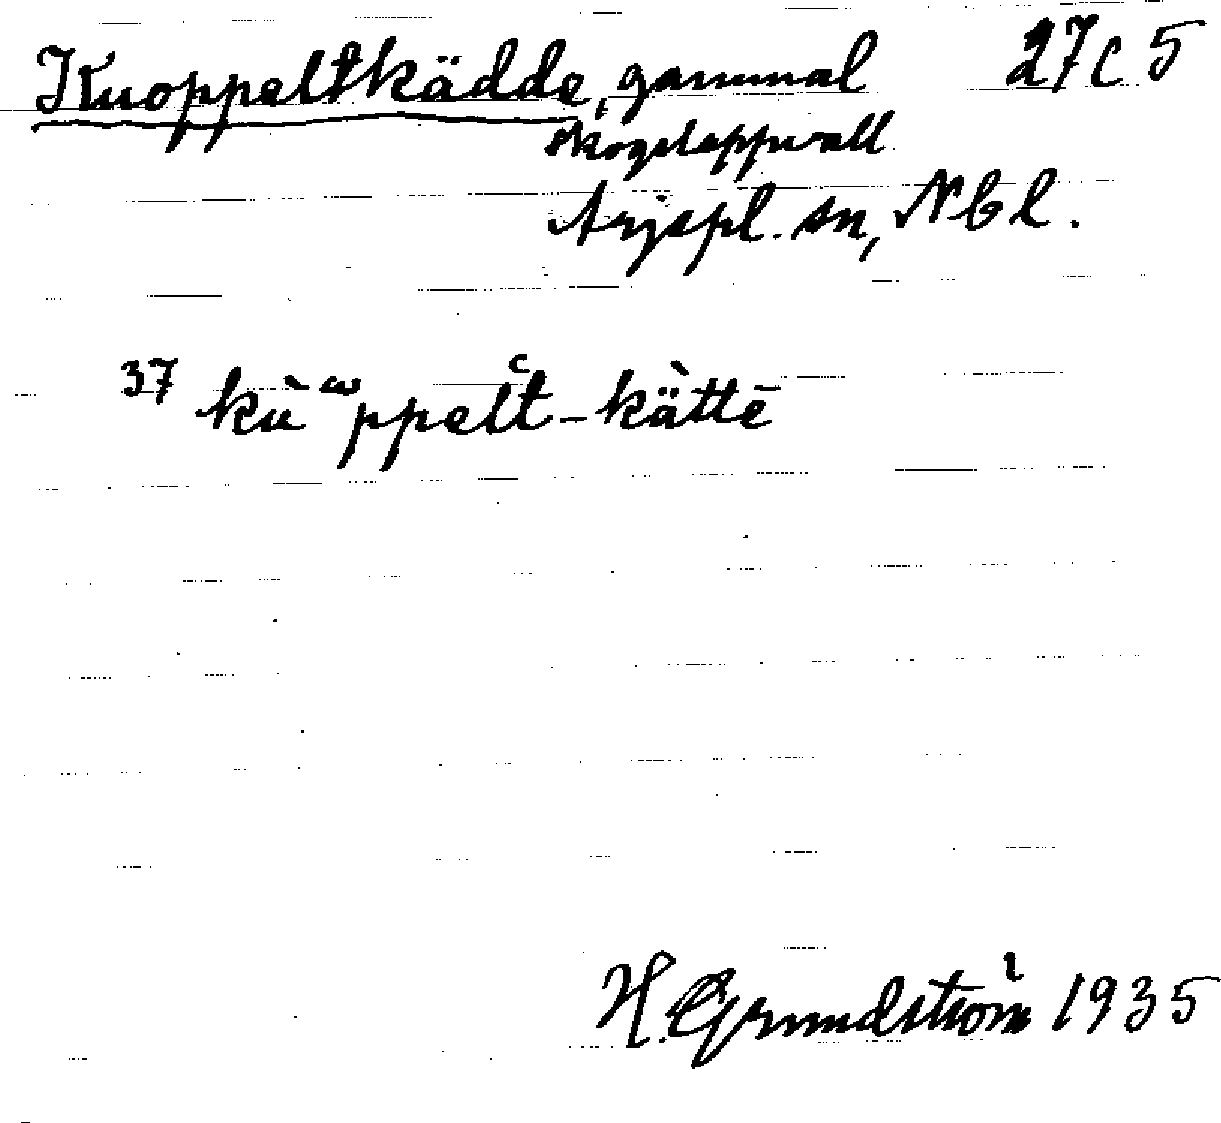 Kuoppeltkädde, gammal 27C 5
skogslappvall
Arjepl. sn, Nbl.
37 kùͫppelt́-kä̀ttē
H. Grundström 1935